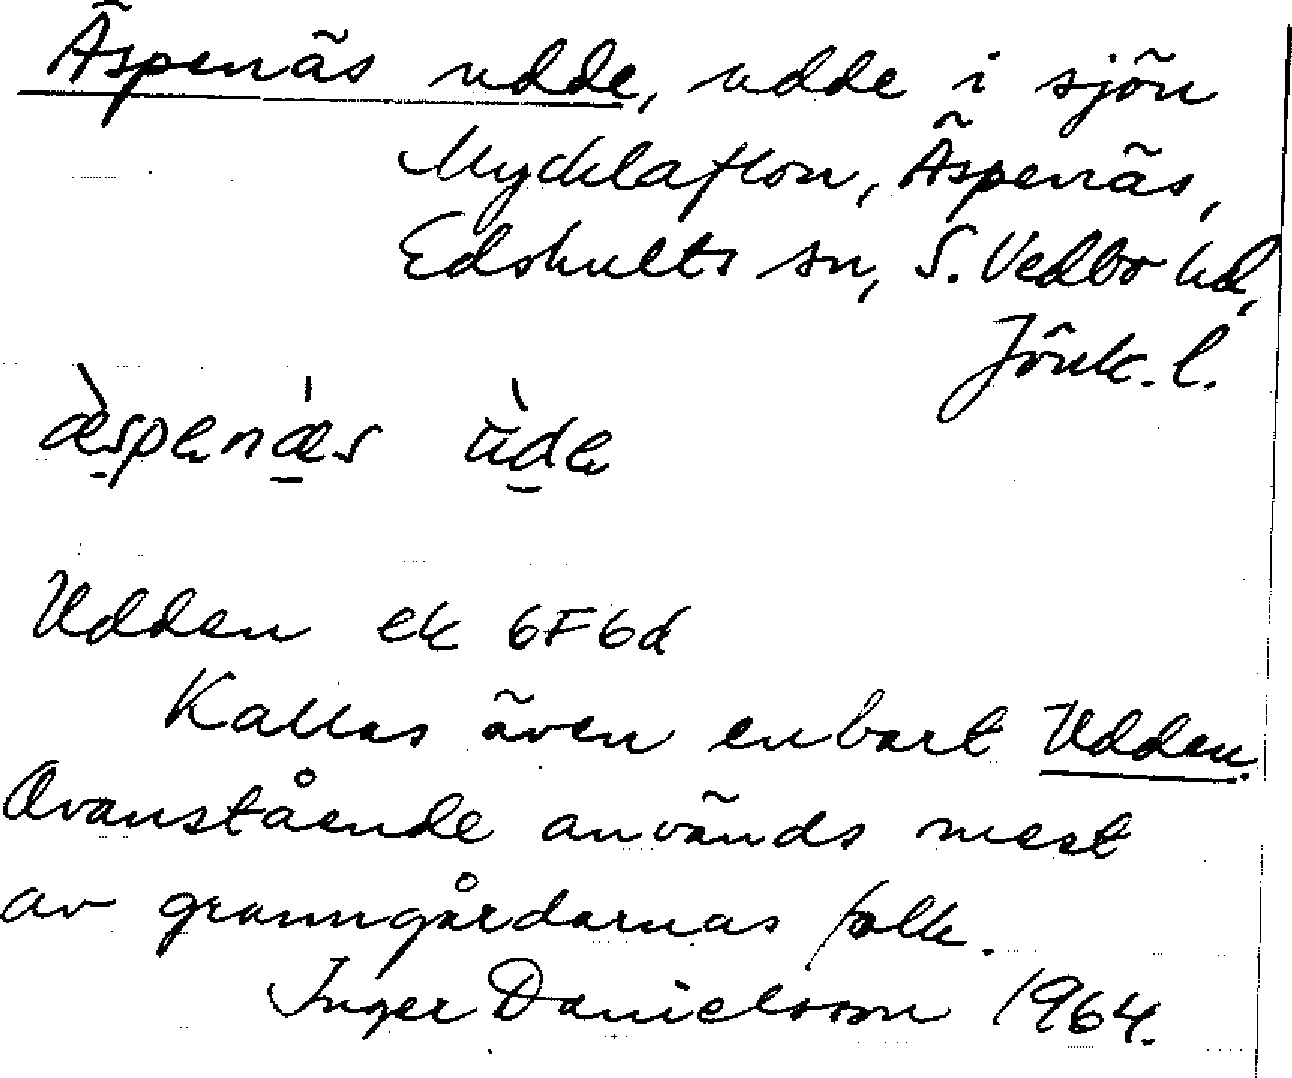 Äspenäs udde, udde i sjön
Mycklaflon, Äspenäs,
Edshults sn, S. Vedbo hd,
Jönk. l.
æ̀spenǽs ùde
Udden ek 6F6d
Kallas även enbart Udden.
Ovanstående används mest
av granngårdarnas folk.
Inger Danielsson 1964.